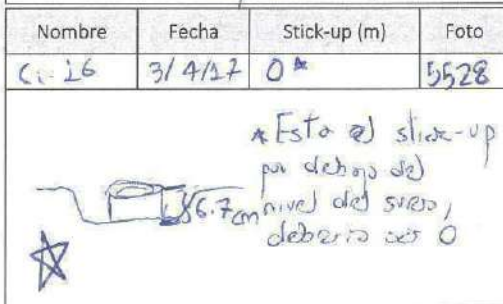 Nombre Fecha Stick-up (m) Foto
3/4/17 0* 5528
* Esta el stick-up
por debajo del
6.7 cm nivel del suelo,
deberia ser 0